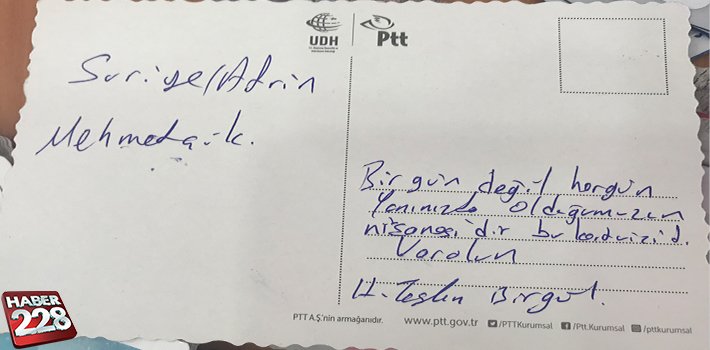 UDH
Ptt
Suriye/Afrin
Mehmetcik.
Bir gün değil hergün
Yanınızda Olduğumuzun
nişanesi'dir bu
Varolun
H. Birgül.
PTT A.Ş'nin armağanıdır.
www.ptt.gov.tr
/PTTKurumsal
/Ptt.Kurumsal
/pttkurumsal
HABER
228